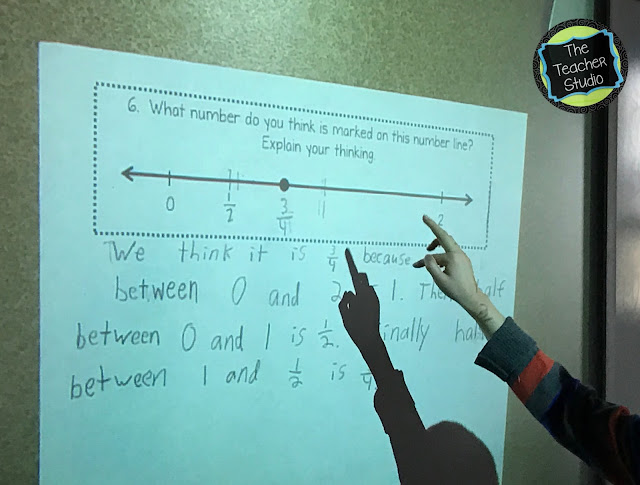 The
Teacher
Studio
6. What number do you think is marked on this number line?
Explain your thinking.
0 1/2 3/4 1 2
We think it is 3/4 because
between 0 and 2 1. The half
between 0 and 1 is 1/2. inally hal
between 1 and 1/2 is